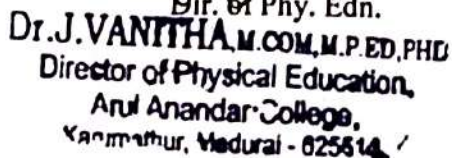 Dir. of Phy. Edn.
Dr.J.VANITHA,M.COM,M.P.ED,PHD
Director of Physical Education,
Arul Anandar College,
Madurai - 625514